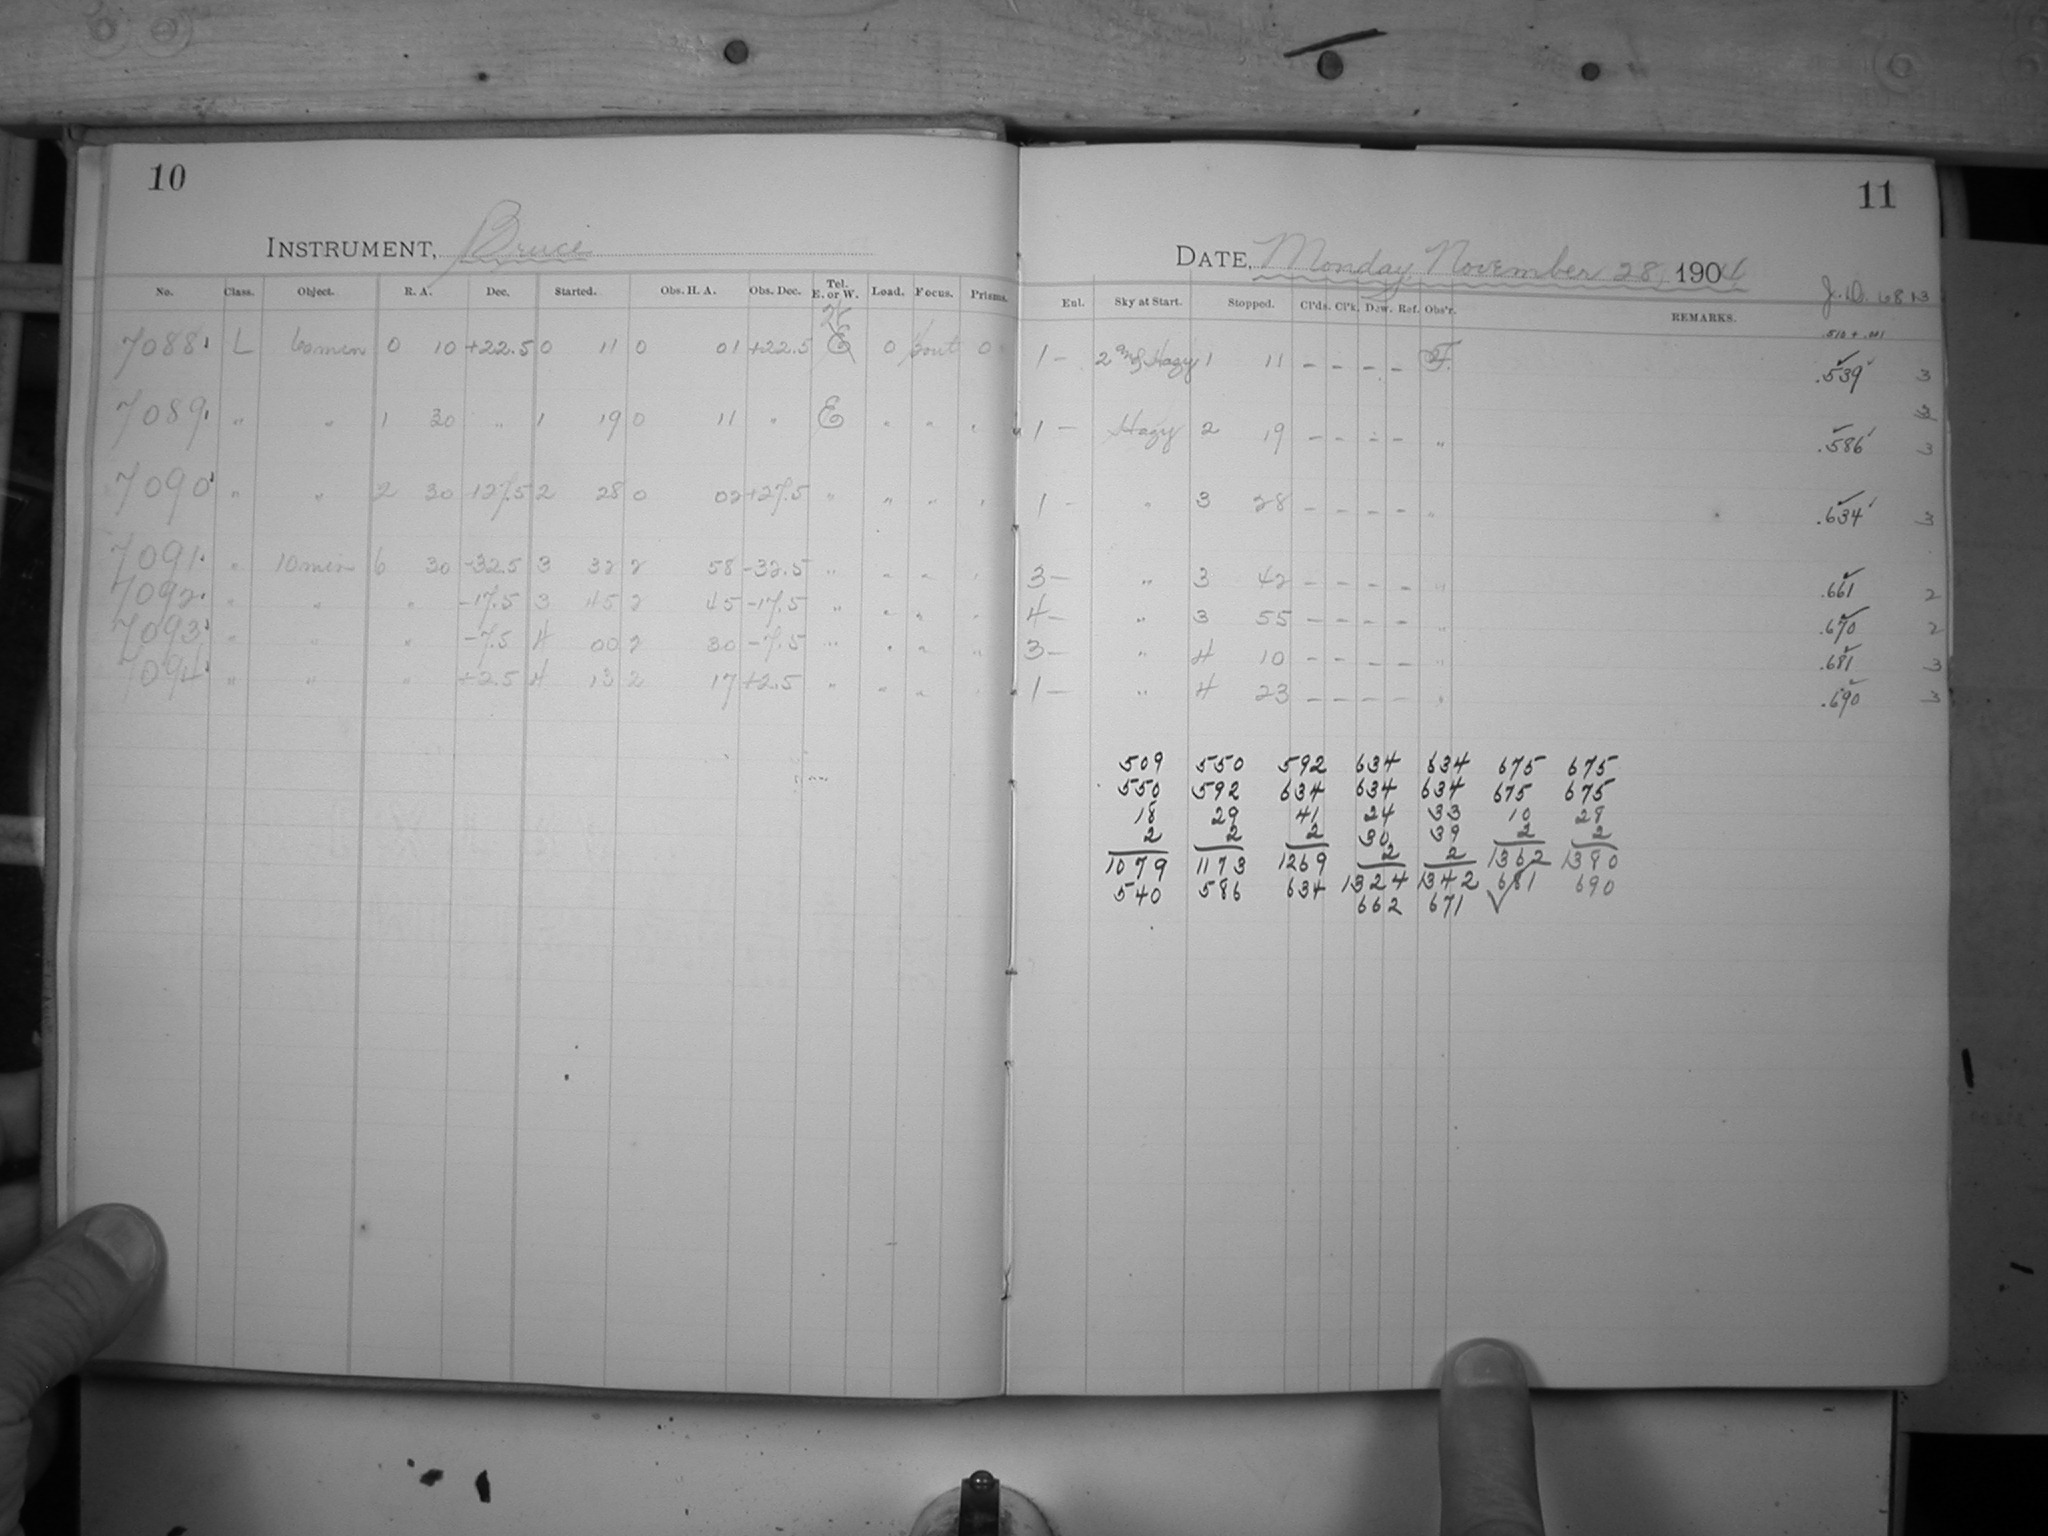 10
INSTRUMENT, Bruce
No. Class. Object. R. A. Dec. Started. Obs. H. A. Obs. Dec. Tel. E. or W. Load. Focus. Prisms.
7088 L 60min 0 10 +22.5 0 11 0 01 +22.5 E 0 0
7089 " " 1 30 " 1 19 0 11 " E " " "
7090 " " 2 30 +27.5 2 28 0 02 +27.5 " " " "
7091 " 10min 6 30 -32.5 3 32 2 58 -32.5 " " " "
7092 " " " -17.5 3 45 2 45 -17.5 " " " "
7093 " " " -7.5 4 00 2 30 -7.5 " " " "
7094 " " " +2.5 4 13 2 17 +2.5 " " " "
11
DATE, Monday, November 28, 1904
J. D. 6813
Enl. Sky at Start. Stopped. Cl'ds. Cl'k. Dew. Ref. Obs'r. REMARKS.
.510 + .001
1 - Hazy 1 11 - - - - .539 3
3
1 - Hazy 2 19 - - - - " .586 3
1 - " 3 28 - - - - " .634 3
3 - " 3 42 - - - - " .661 2
4 - " 3 55 - - - - " .670 2
3 - " 4 10 - - - - " .681 3
1 - " 4 23 - - - - " .690 3
509 550 592 634 634 675 675
550 592 634 634 634 675 675
18 29 41 24 33 10 28
2 2 2 30 39 2 2
1079 1173 1269 2 2 1362 1380
540 586 634 1324 1342 681 690
662 671 ✓